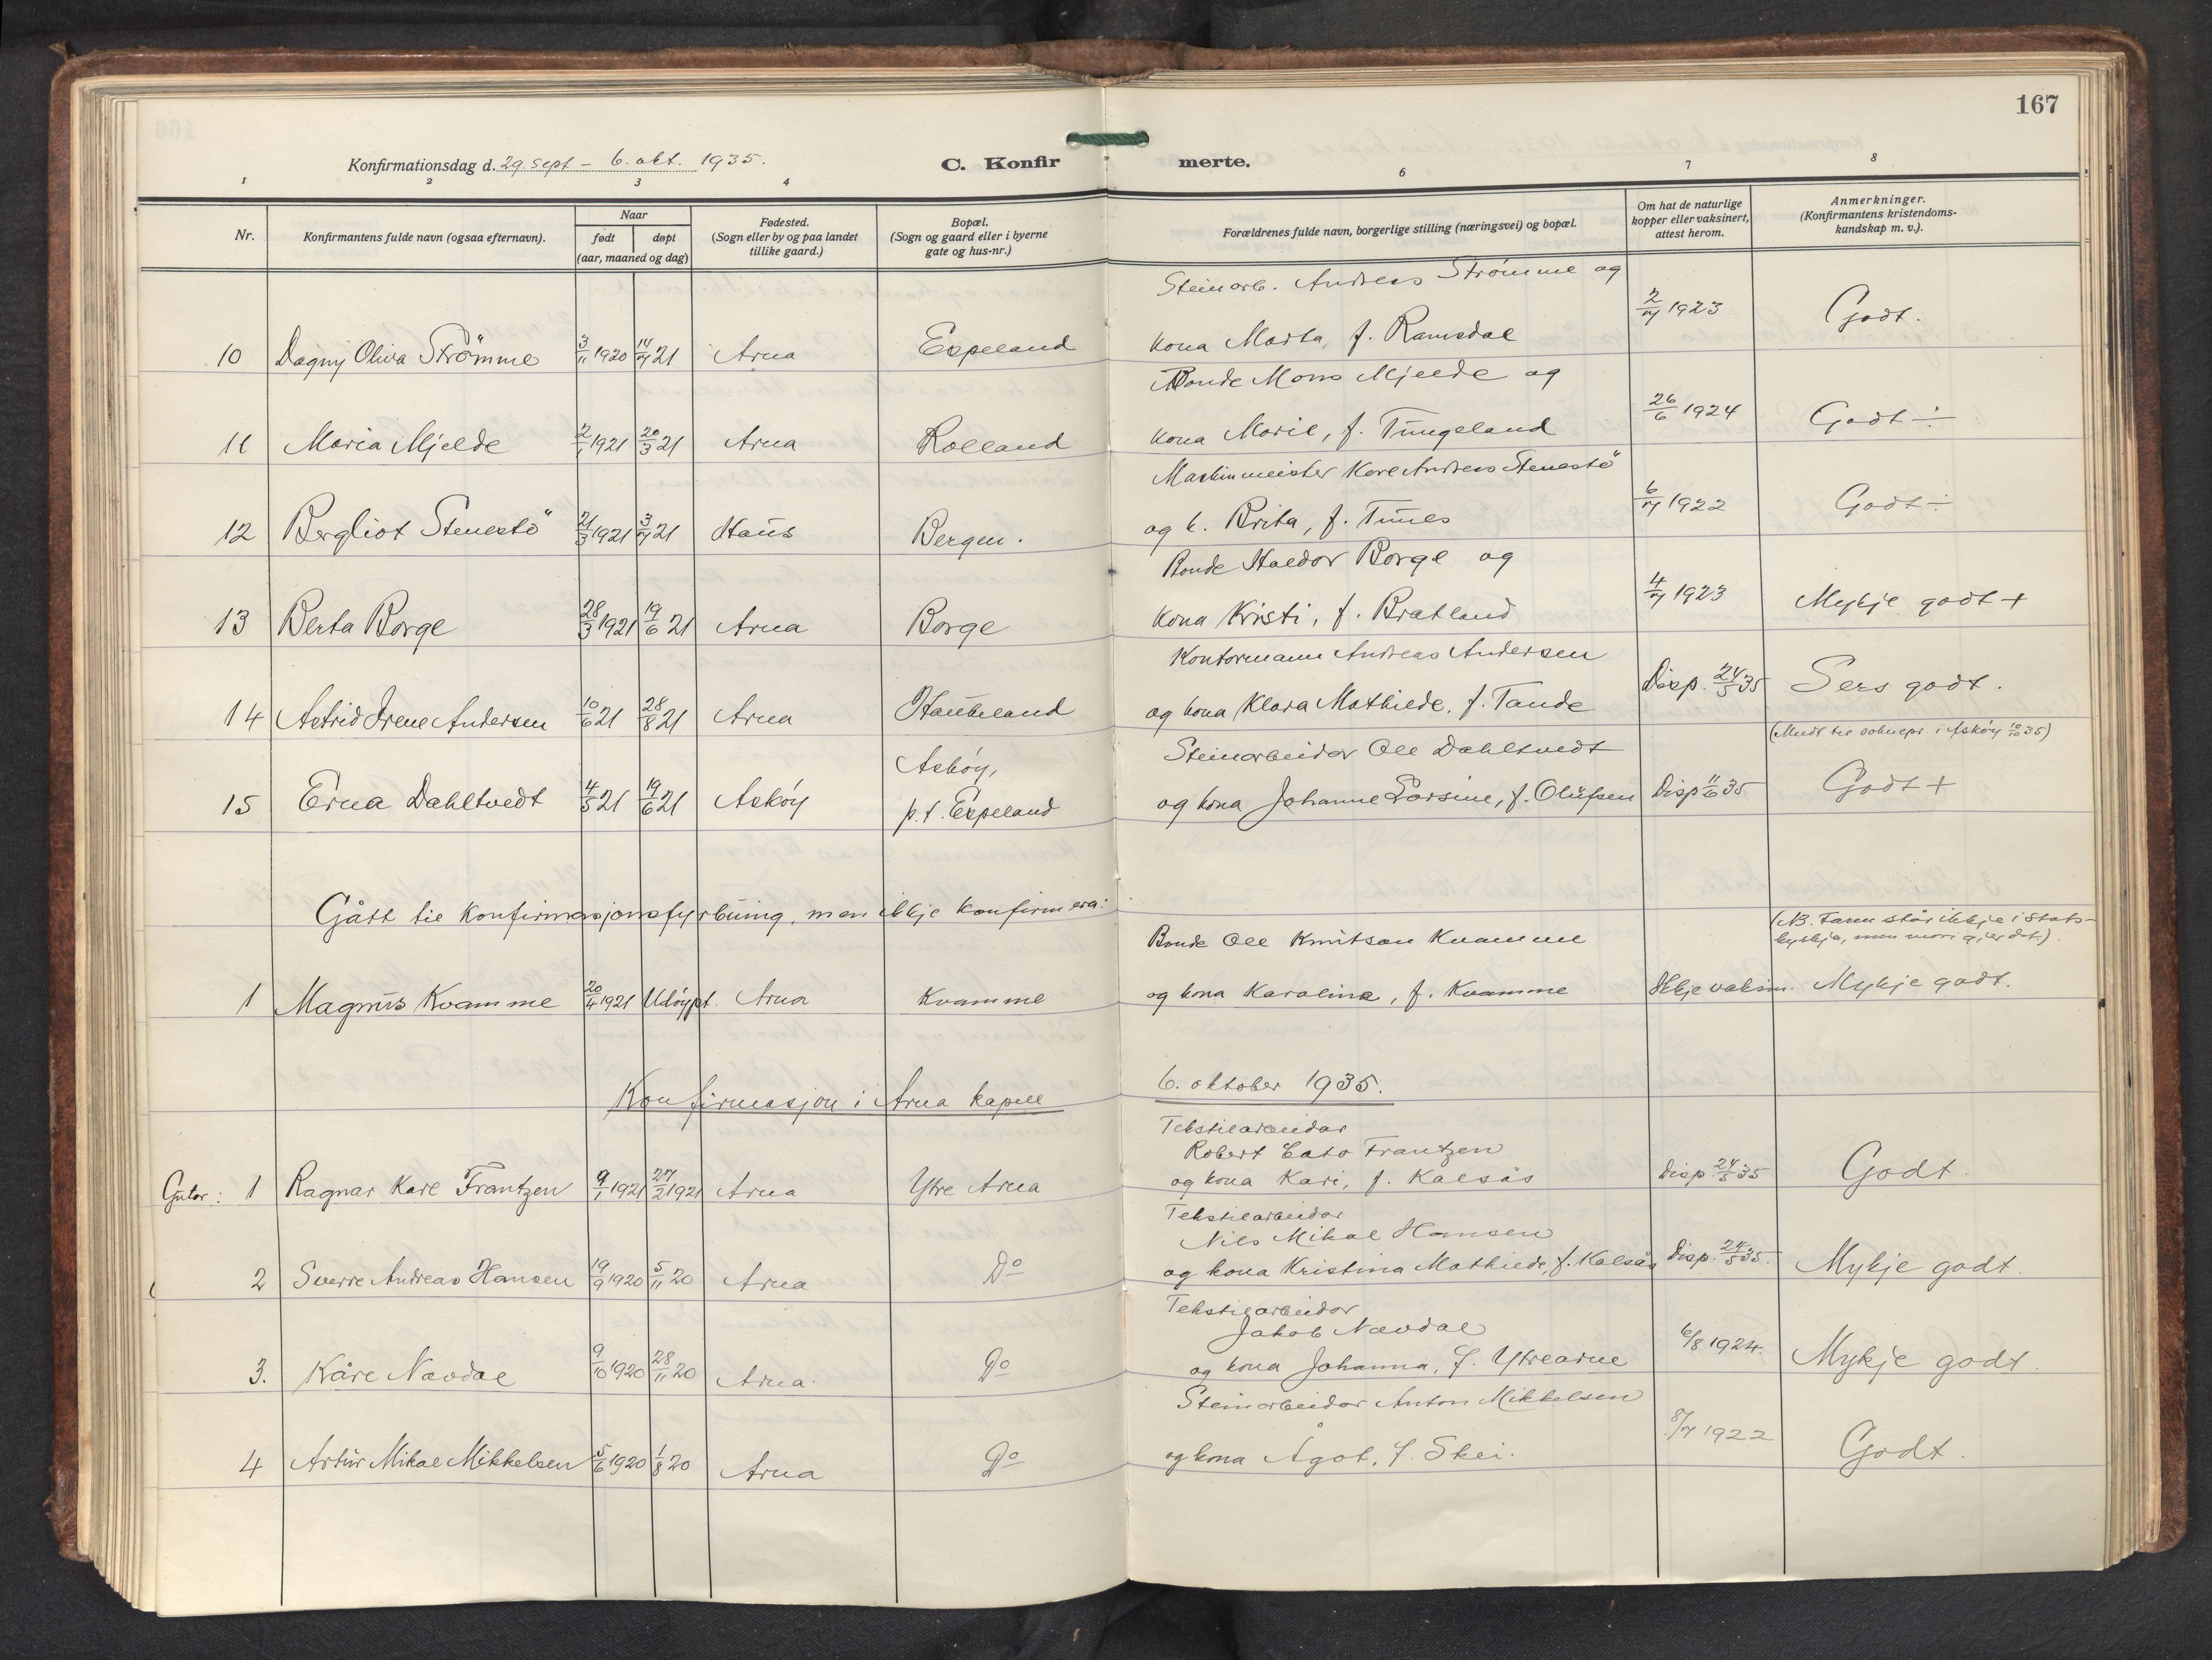 167
Konfirmationsdag d. 29. sept – 6. okt. 1935.
C. Konfir merte.
1 2 3 4 6 7 8
Nr.
Konfirmantens fulde navn (ogsaa efternavn).
Naar
født døpt
(aar, maaned og dag)
Fødested.
(Sogn eller by og paa landet
tillike gaard.)
Bopæl.
(Sogn og gaard eller i byerne
gate og hus-nr.)
Forældrenes fulde navn, borgerlige stilling (næringsvei) og bopæl.
Om hat de naturlige
kopper eller vaksinert,
attest herom.
Anmerkninger.
(Konfirmantens kristendoms-
kundskap m. v.).
Steinarb. Andreas Strømme og
10 Dagny Oliva Strömme 3/11 1920 14/4 21 Arna Espeland kona Marta, f. Ramsdal 2/7 1923 Godt.
Bonde Mons Mjelde og
11 Maria Mjelde 2/1 1921 20/3 21 Arna Rolland kona Maril, f. Tungeland 26/6 1924 Godt ÷
Maskinmeister Karl Andreas Stenestö
12 Bergliot Stenestö 21/3 1921 3/7 21 Haus Bergen. og k. Brita, f. Tunes 6/7 1922 Godt ÷
Bonde Haldor Borge og
13 Berta Borge 28/3 1921 19/6 21 Arna Borge kona Kristi, f. Bratland 4/7 1923 Mykje godt +
Kontormann Andreas Andersen
14 Astrid Irene Andersen 10/6 21 28/8 21 Arna Haukeland og kona Klara Mathilde, f. Tande Disp. 24/5 35 Sers godt.
(Meldt til soknepr. i Askøy 10/10 35)
Steinarbeidar Ole Dahltvedt
15 Erna Dahltvedt 4/5 21 19/6 21 Askøy Askøy,
p.t. Espeland og kona Johanne Lorsine, f. Olufsen Disp 11/6 35 Godt +
Gått til konfirmasjonsfyrbuing, men ikkje konfirmera:
(NB. Faren står ikkje i Stats-
kyrkja, men mori gjer det).
Bonde Ole Knutson Kvamme
1 Magnus Kvamme 20/4 1921 Udøypt. Arna Kvamme og kona Karolina, f. Kvamme Ikkje vaksin. Mykje godt.
Konfirmasjon i Arna kapell 6. oktober 1935.
Tekstilarbeidar
Robert Eato Frantzen
Gutar: 1 Ragnar Kare Frantzen 9/1 1921 27/2 1921 Arna Ytre Arna og kona Kari, f. Kalsås Disp. 24/5 35 Godt.
Tekstilarbeidar
Nils Mikal Hansen
2 Sverre Andreas Hansen 19/9 1920 5/11 20 Arna Do og kona Kristina Mathilde, f. Kalsås Disp. 24/5 35. Mykje godt.
Tekstilarbeidar
Jakob Nævdal
3. Kåre Nævdal 9/10 1920 28/11 20 Arna. Do og kona Johanna, f. Ytrearne 6/8 1924. Mykje godt.
Steinarbeidar Anton Mikkelsen
4 Artur Mikal Mikkelsen 5/6 1920 1/8 20 Arna Do og kona Ågot, f. Skei. 8/7 1922 Godt.